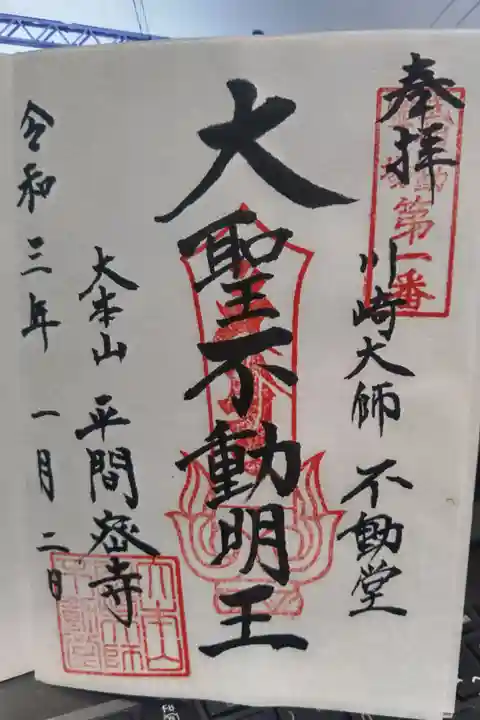 奉拝
第一番
川崎大師 不動堂
大聖不動明王
大本山 平間寺
令和三年 一月二日